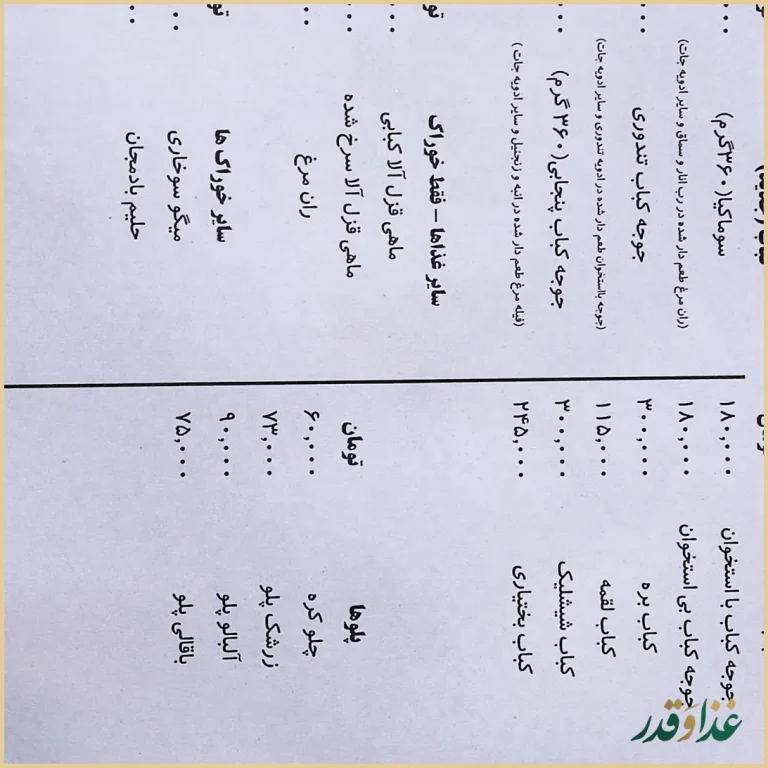 جوجه کباب با استخوان ۱۸۰,۰۰۰
جوجه کباب بی استخوان ۱۸۰,۰۰۰
کباب بره ۳۰۰,۰۰۰
کباب لقمه ۱۱۵,۰۰۰
کباب شیشلیک ۳۰۰,۰۰۰
کباب بختیاری ۲۴۵,۰۰۰
پلوها تومان
چلو کره ۶۰,۰۰۰
زرشک پلو ۷۳,۰۰۰
آلبالو پلو ۹۰,۰۰۰
باقالی پلو ۷۵,۰۰۰
سوماکیا(۳۶۰گرم)
(ران مرغ طعم دار شده در رب انار و سماق و سایر ادویه جات)
جوجه کباب تندوری
(جوجه بااستخوان طعم دار شده در ادویه تندوری و سایر ادویه جات)
جوجه کباب پنجابی(۳۶۰ گرم)
(فیله مرغ طعم دار شده در انبه و زنجبیل و سایر ادویه جات)
سایر غذاها – فقط خوراک
ماهی قزل آلا کبابی
ماهی قزل آلا سرخ شده
ران مرغ
سایر خوراک ها
میگو سوخاری
حلیم بادمجان
غذا و قدر